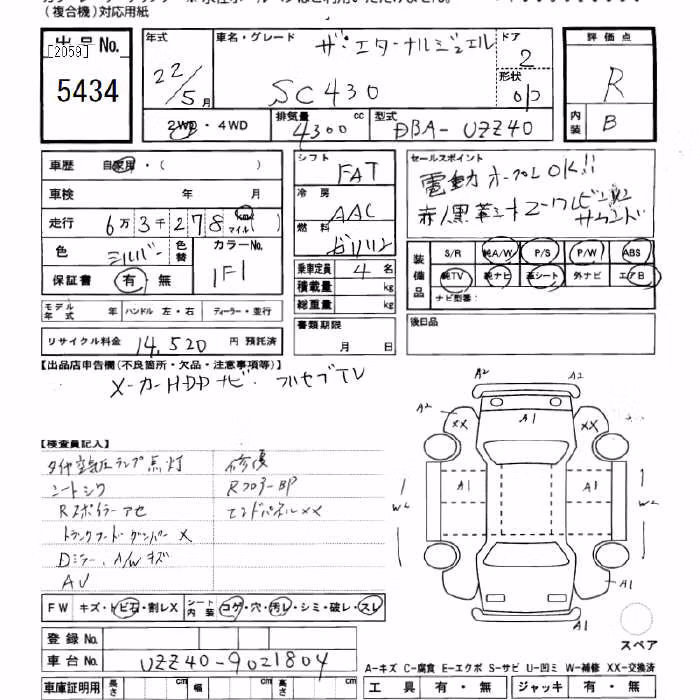 (複合機)対応用紙
出品No.
[2059]
5434
年式
22/5月
車名・グレード
ザ・エターナルジュエル
SC430
ドア
2
形状
評価点
R
内装
B
2WD・4WD
排気量
4300 cc
型式
DBA-UZZ40
車歴 自家用・( )
車検 年 月
走行 6万3千278 km マイル( )
色 シルバー 色替
カラーNo.
1F1
保証書 有・無
シフト
FAT
冷房
AAC
燃料
ガソリン
乗車定員 4 名
積載量 kg
総重量 kg
書類期限
月 日
セールスポイント
電動オープンOK!!
赤/黒革シート
サウンド
装備品
S/R 純A/W P/S P/W ABS
純TV 純ナビ 革シート 外ナビ エアB
ナビ型番:
後日品
モデル年式 年 ハンドル 左・右 ディーラー・並行
リサイクル料金 14,520 円 預託済
【出品店申告欄(不良箇所・欠品・注意事項等)】
メーカーHDDナビ・フルセグTV
【検査員記入】
タイヤ空気圧ランプ点灯
シートシワ
Rスポイラーアセ
トランクフードダンパーX
Dミラー、A/Wキズ
AU
修復
RフロアーBP
エンドパネルXX
A2
A2
A2
XX
XX
A1
A1
A1
A1
A1
スペア
FW キズ・トビ石・割レX シート内装 コゲ・穴・汚レ・シミ・破レ・スレ
登録No.
車台No. UZZ40-9021804
車庫証明用 長さ cm 幅 cm 高さ cm
A-キズ C-腐食 E-エクボ S-サビ U-凹ミ W-補修 XX-交換済
工具 有・無 ジャッキ 有・無